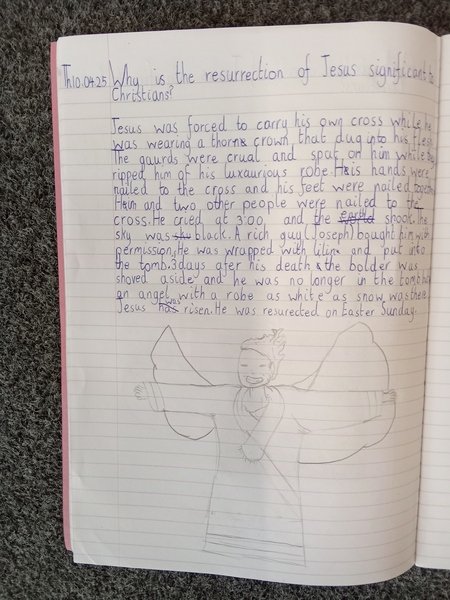 Th10.04.25 Why is the resurrection of Jesus significant to
Christians?
Jesus was forced to carry his own cross while he
was wearing a thorn crown that dug into his flesh.
The gaurds were crual and spat on him while they
ripped him of his luxaurious robe. His hands were
nailed to the cross and his feet were nailed together
Him and two other people were nailed to the
cross. He cried at 3:00, and the earth shook. the
sky was black. A rich guy(Joseph) bought him with
permission. He was wrapped with lilin and put into
the tomb. 3 days afer his death the bolder was
shoved aside and he was no longer in the tomb
an angel with a robe as white as snow was there
Jesus was risen. He was resurected on Easter Sunday.